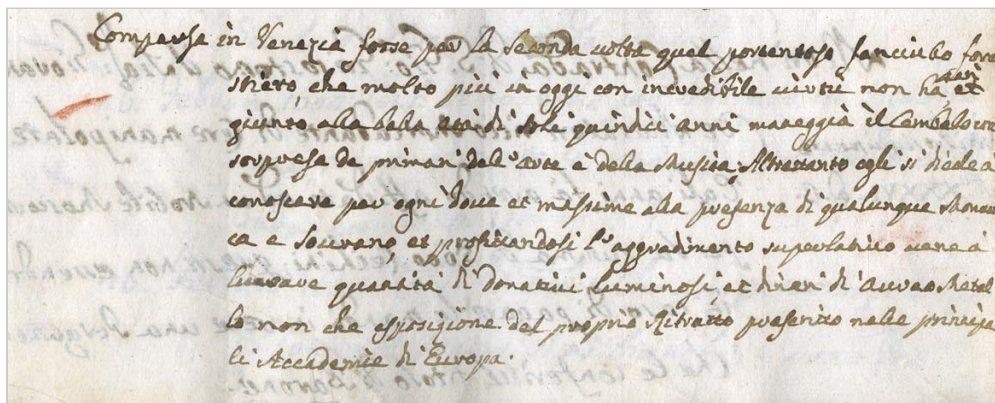 Comparsa in Venezia forse per la seconda volta quel portentoso fanciulo fore
stiero, che molto più in oggi con incredibile virtù non ha
giunto alla bela età di sole quindici anni maneggia il Cembalo con
sorpresa de primari del'arte e della Musica; Altrettanto egli si diede à
conoscere per ogni dove et massime alla presenza di qualunque Monar
ca e Sovrano, et profitandosi l'aggradimento superlativo vene à
lucrare quantità di donativi luminosi et dinari di aureo Metal
lo non che esposizione del proprio Ritratto preferito nelle principa
li Accademie di Europa.